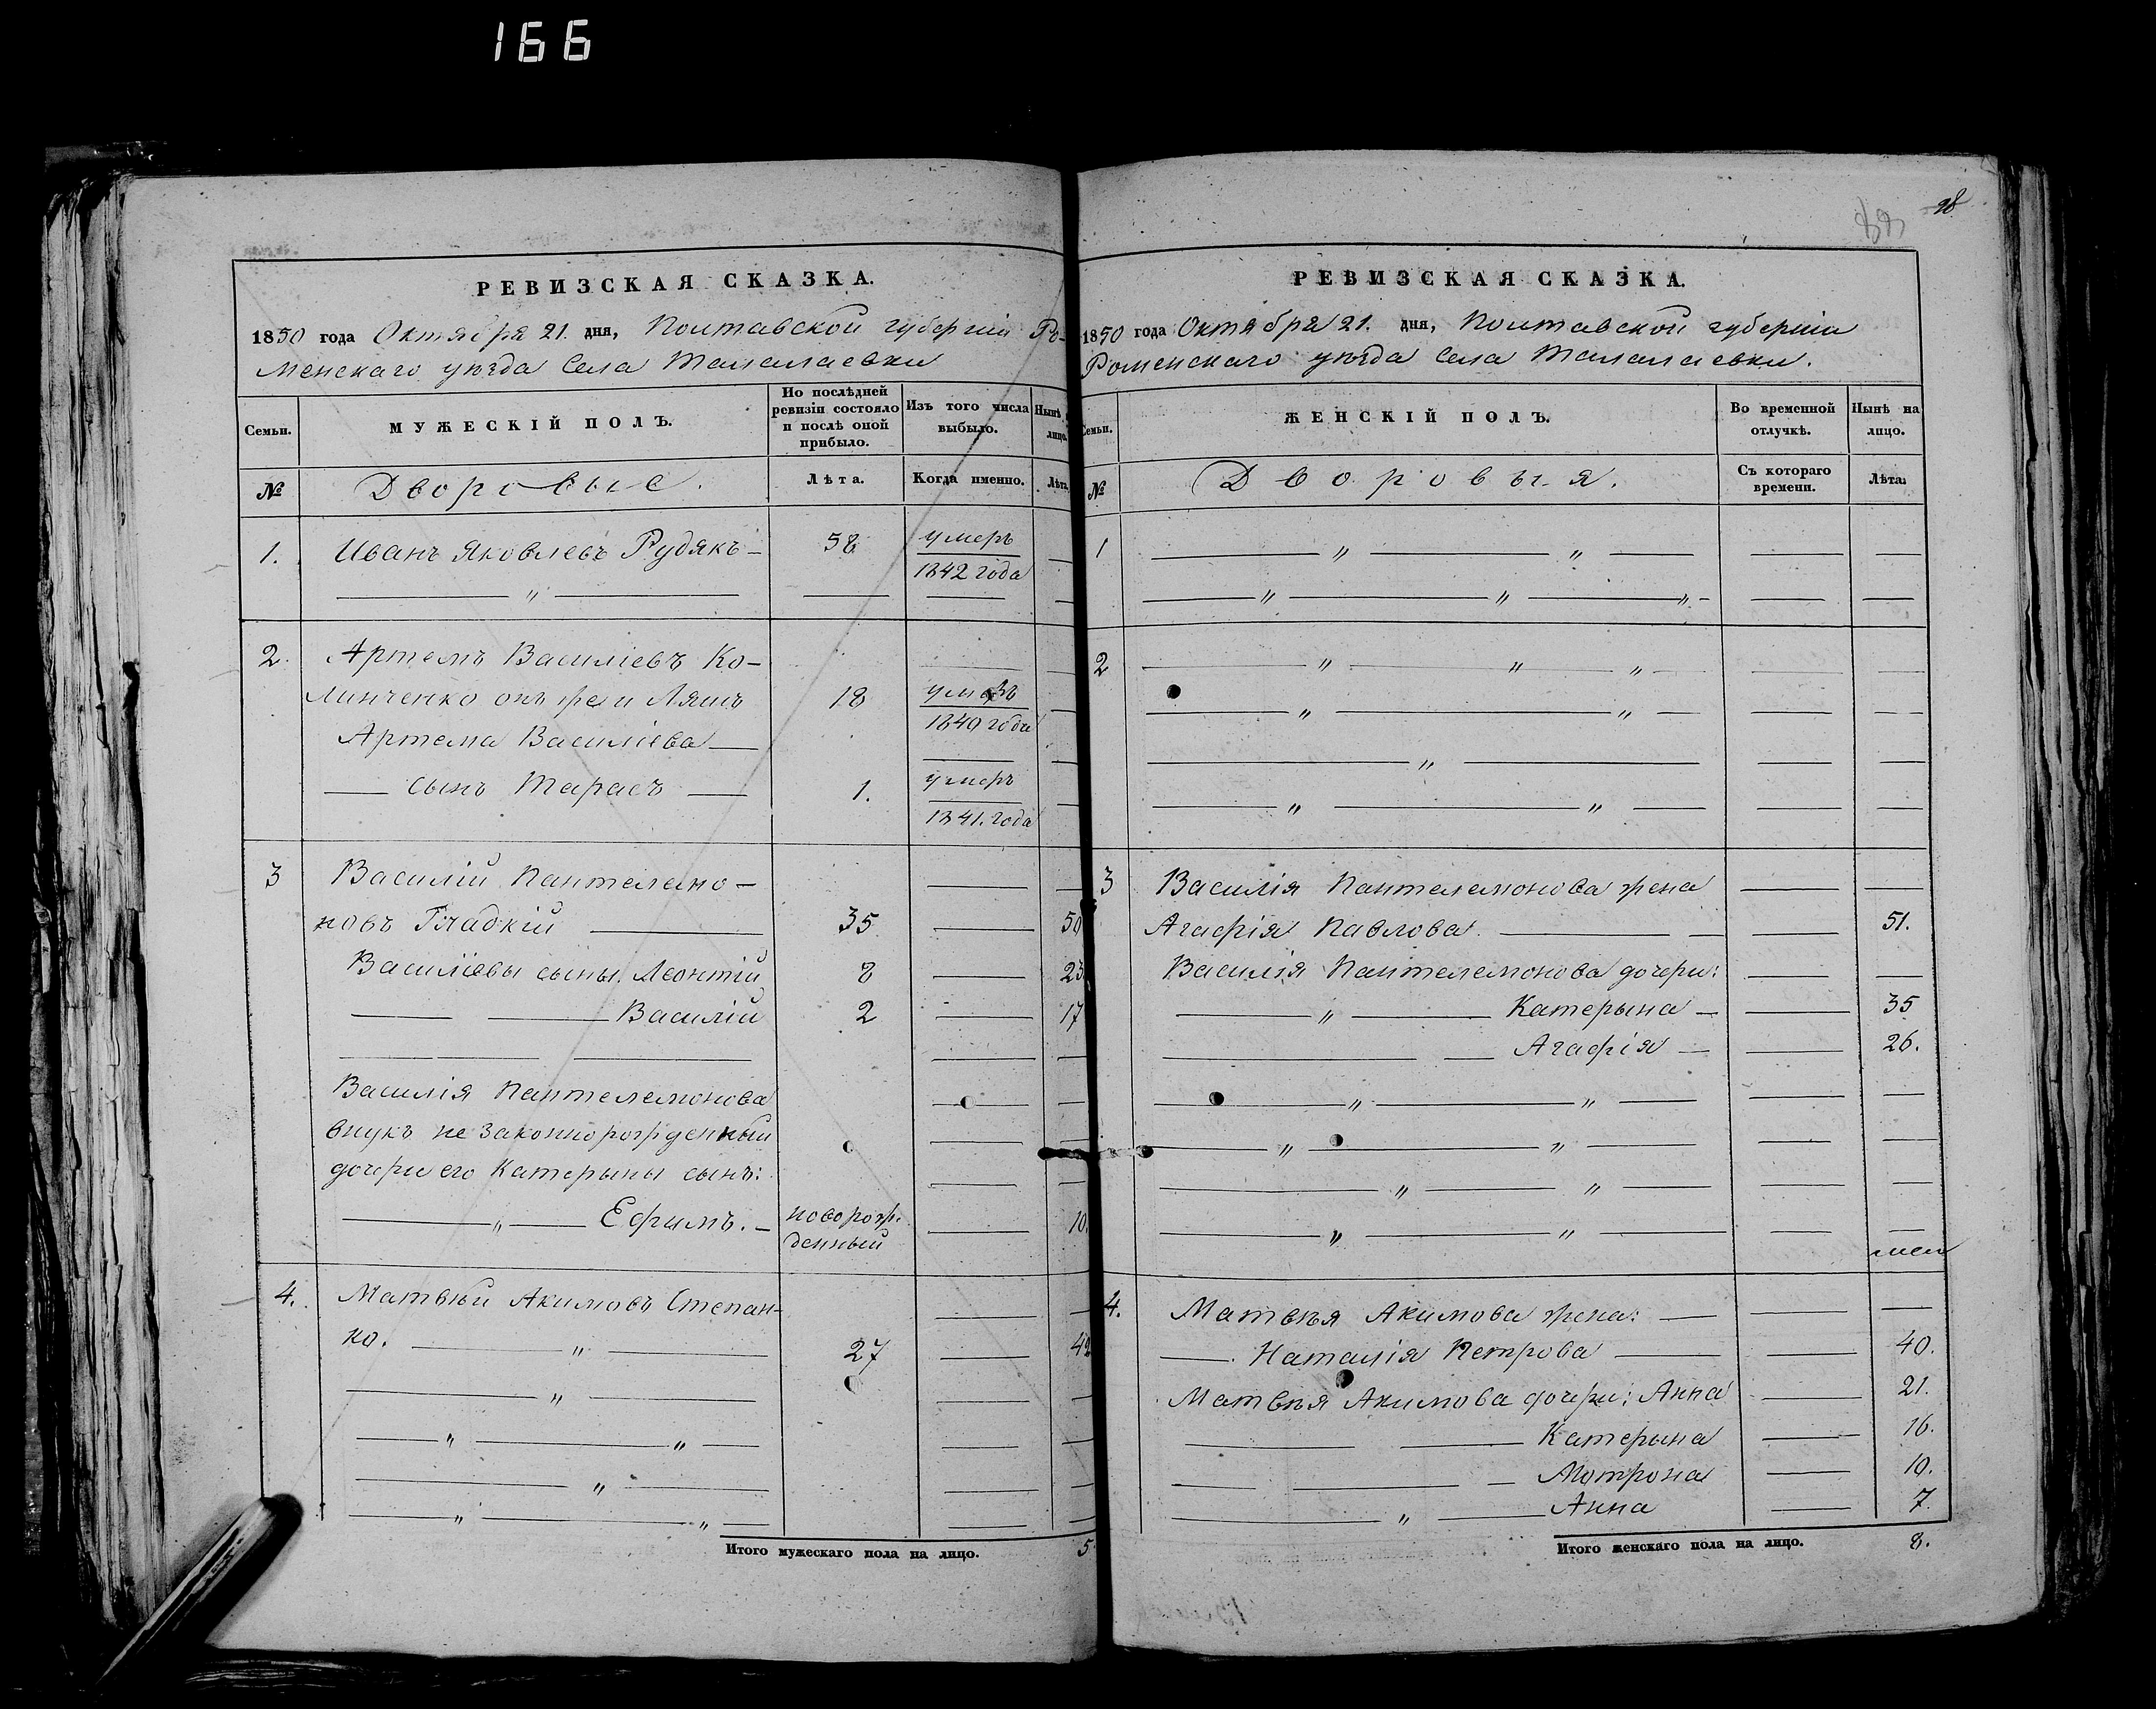 166
28
РЕВИЗСКАЯ СКАЗКА.
1850 года Октября 21. дня, Полтавской губерніи Ро-
менскаго уѣзда Села Талалаевки
Семьи.
МУЖЕСКІЙ ПОЛЪ.
По послѣдней ревизіи состояло и послѣ оной прибыло.
Изъ того числа выбыло.
Нынѣ на лицо.
№
Дворовые.
Лѣта.
Когда именно.
Лѣта.
1. Иванъ Яковлевъ Рудякъ — 58 умеръ
1842 года
2. Артемъ Василіевъ Ко-
линченко онъ же и Ляшъ 18 умеръ
1849 года
Артема Василіева —
сынъ Тарасъ — 1. умеръ
1841. года
3 Василій Пантелемо-
новъ Гладкій 35 50
Василіевы сыны. Леонтій 8 23
Василій 2 17
Василія Пантелемонова
внукъ не законнорожденный
дочери его Катерыны сынъ:
Ефимъ. — новорож-
денный 10.
4. Матвѣй Акимовъ Степан-
ко. 27 42
Итого мужескаго пола на лицо. 5.
РЕВИЗСКАЯ СКАЗКА.
1850 года Октября 21. дня, Полтавской губерніи
Роменскаго уѣзда Села Талалаевки.
Семьи.
ЖЕНСКІЙ ПОЛЪ.
Во временной отлучкѣ.
Нынѣ на лицо.
№
Дворовыя.
Съ котораго времени.
Лѣта.
1
2
3 Василія Пантелемонова жена
Агафія Павлова. 51.
Василія Пантелемонова дочери:
Катерына — 35
Агафія — 26.
4. Матвѣя Акимова жена:
Наталія Петрова 40.
Матвѣя Акимова дочери: Анна 21.
Катерына 16.
Мотрона 10.
Анна 7.
Итого женскаго пола на лицо. 8.